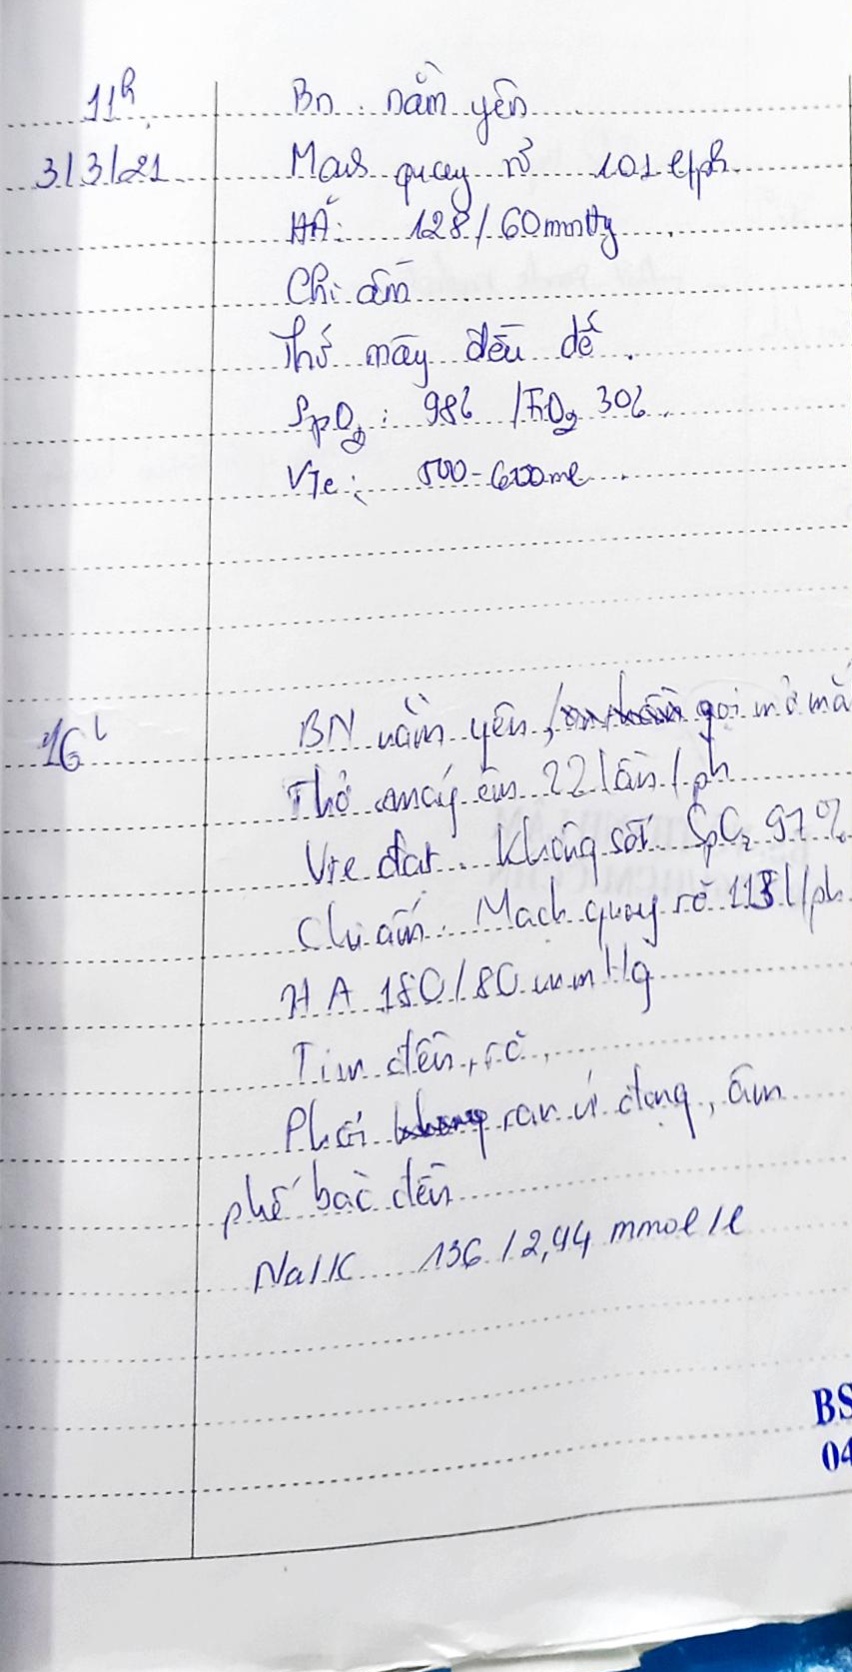 11h
Bn nằm yên
3/3/21
Mạch quay rõ 101 l/ph
HA: 128/60mmHg
Chi ấm
Thở máy đều dễ.
SpO2: 98% /FiO2 30%
Vte: 500-600ml
16h
BN nằm yên, gọi mở mắ
Thở máy êm 22 lần/ph
Vte đạt. Không sốt. SpO2 97%
Chi ấm. Mạch quay rõ 118 l/ph
HA 180/80 mmHg
Tim đều, rõ,
Phổi ran ứ đọng, âm
phế bào đều
Na/K 136/2,94 mmol/l
BS
04